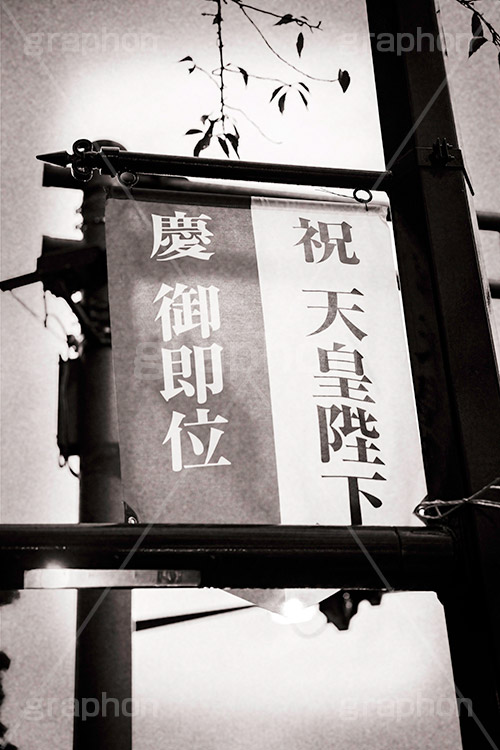 祝 天皇陛下
慶 御即位
graphon
graphon
graphon
graphon